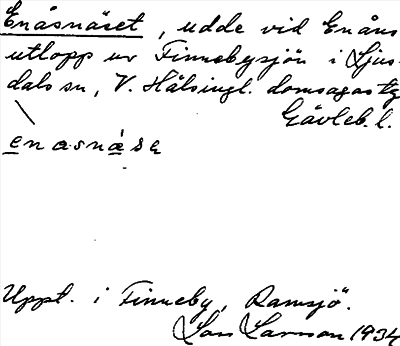 Enåsnäset, udde vid Enåns
utlopp ur Finnebysjön i Ljus-
dals sn, V. Hälsingl. domsagas tg
Gävleb. l.
enasnäse
Uppt. i Finneby, Ramsjö.
Lars Larsson 1934